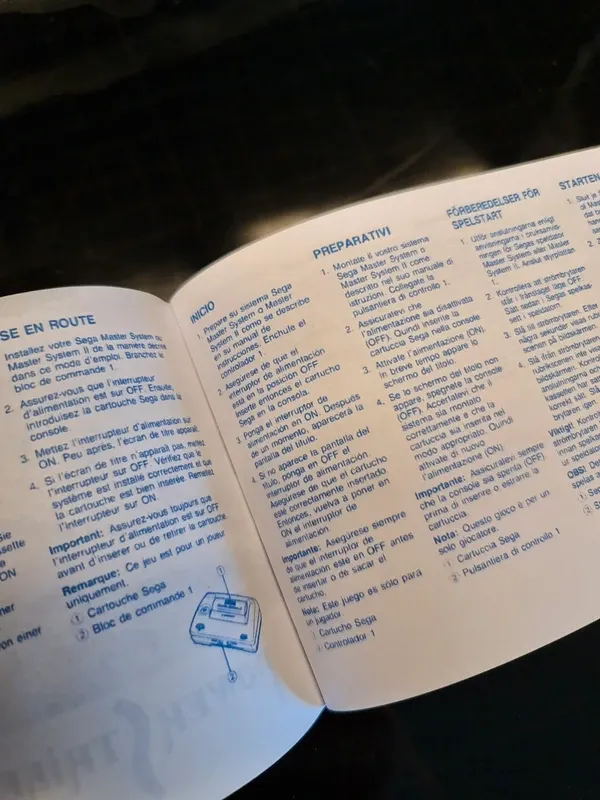 SE EN ROUTE
Installez votre Sega Master System ou
Master System II de la manière décrite
dans ce mode d'emploi. Branchez le
bloc de commande 1.
2. Assurez-vous que l'interrupteur
d'alimentation est sur OFF. Ensuite,
introduisez la cartouche Sega dans la
console.
3. Mettez l'interrupteur d'alimentation sur
ON. Peu après, l'écran de titre apparaît.
4. Si l'écran de titre n'apparaît pas, mettez
l'interrupteur sur OFF. Vérifiez que le
système est installé correctement et que
la cartouche est bien insérée. Remettez
l'interrupteur sur ON.
Important: Assurez-vous toujours que
l'interrupteur d'alimentation est sur OFF
avant d'insérer ou de retirer la cartouche.
Remarque: Ce jeu est pour un joueur
uniquement.
① Cartouche Sega
② Bloc de commande 1
①
②
ON
on einer
INICIO
1. Prepare su sistema Sega
Master System o Master
System II como se describe
en su manual de
instrucciones. Enchufe el
controlador 1.
2. Asegúrese de que el
interruptor de alimentación
está en la posición OFF.
Inserte entonces el cartucho
Sega en la consola.
3. Ponga el interruptor de
alimentación en ON. Después
de un momento, aparecerá la
pantalla del título.
4. Si no aparece la pantalla del
título, ponga en OFF el
interruptor de alimentación.
Asegúrese de que el cartucho
esté correctamente insertado.
Entonces, vuelva a poner en
ON el interruptor de
alimentación.
Importante: Asegúrese siempre
de que el interruptor de
alimentación esté en OFF antes
de insertar o de sacar el
cartucho.
Nota: Este juego es sólo para
un jugador
① Cartucho Sega
② Controlador 1
PREPARATIVI
1. Montate il vostro sistema
Sega Master System o
Master System II come
descritto nel suo manuale di
istruzioni. Collegate la
pulsantiera di controllo 1.
2. Assicuratevi che
l'alimentazione sia disattivata
(OFF). Quindi inserite la
cartuccia Sega nella console
3. Attivate l'alimentazione (ON).
In breve tempo appare lo
schermo del titolo.
4. Se lo schermo del titolo non
appare, spegnete la console
(OFF). Accertatevi che il
sistema sia montato
correttamente e che la
cartuccia sia inserita nel
modo appropriato. Quindi
attivate di nuovo
l'alimentazione (ON)
Importante: Assicuratevi sempre
che la console sia spenta (OFF)
prima di inserire o estrarre la
cartuccia.
Nota: Questo gioco è per un
solo giocatore.
① Cartuccia Sega
② Pulsantiera di controllo 1
FÖRBEREDELSER FÖR
SPELSTART
1. Utför anslutningarna enligt
anvisningarna i bruksanvis-
ningen för Segas speldator
Master System eller Master
System II. Anslut styrplattan
2. Kontrollera att strömbrytaren
står i frånslaget läge OFF.
Sätt sedan i Segas spelkassett
sett i speldatorn.
3. Slå till strömbrytaren. Efter
några sekunder visas
rubrikscenen
4. Slå från strömbrytaren
Viktigt!
OBS!
STARTEN